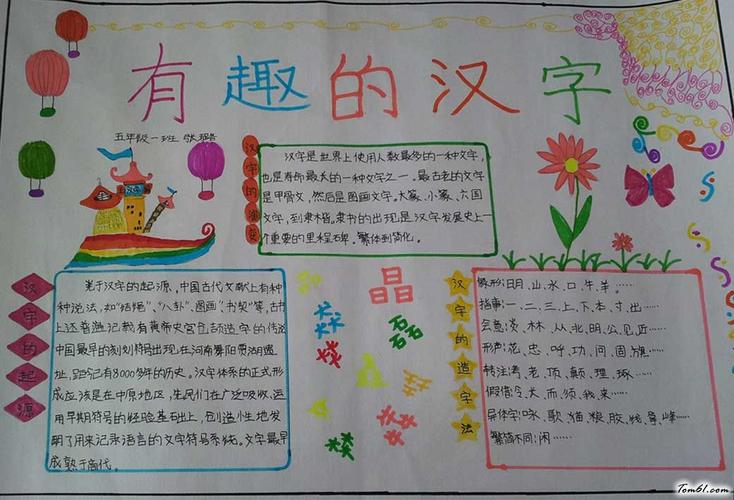 有趣的汉字
五年级一班 张
汉字
汉字的演变
汉字是世界上使用人数最多的一种文字,
也是寿命最长的一种文字之一。最古老的文字
是甲骨文,然后是图画文字。大篆、小篆、六国
文字,到隶书。隶书的出现是汉字发展史上一
个重要的里程碑。繁体到简化。
汉字的起源
关于汉字的起源,中国古代文献上有种
种说法,如“结绳”、“八卦”、“图画”、“书契”等,古书
上还普遍记载有黄帝史官仓颉造字的传说
中国最早的刻划符号出现在河南舞阳贾湖遗
址,距今已有8000多年的历史。汉字体系的正式形
成应该是在中原地区,先民们在广泛吸收、运
用早期符号的经验基础上,创造性地发
明了用来记录语言的文字符号系统。文字最早
成熟于商代。
晶
磊
汉字的造字法
象形:日月、山、水、口、牛、羊……
指事:一、二、三、上、下、本、寸、出……
会意:炎、林、从、北、明、公、见、近……
形声:花、忠、呼、功、问、固、旗……
转注:考、老、顶、颠、理、琢……
假借:令、长、而、须、我、来……
异体字:咏、歌、猫、粮、胶、线、拿、峰……
繁简不同:闲……
Tom61.com